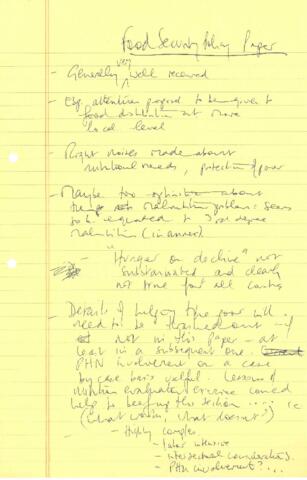 Food Security Policy Paper
- Generally very well received
- Esp. attention proposed to be given to
food distribution at more
local level
- Right noises made about
nutritional needs, protection of poor
- Maybe too optimistic about
malnutrition problems: seems
to be equated to 3rd degree
malnutrition (in annex)
- "Hunger on decline" not
substantiated and clearly
not true for all countries
- Details of helping the poor will
need to be fleshed out - if
not in this paper - at
least in a subsequent one.
PHN involvement on a case
by case basis useful. Lessons of
nutrition evaluation exercise could
help to beef up this section ... ie
(what works, what doesn't)
- Highly complex
- labor intensive
- intersectoral considerations
- PHN involvement? ...